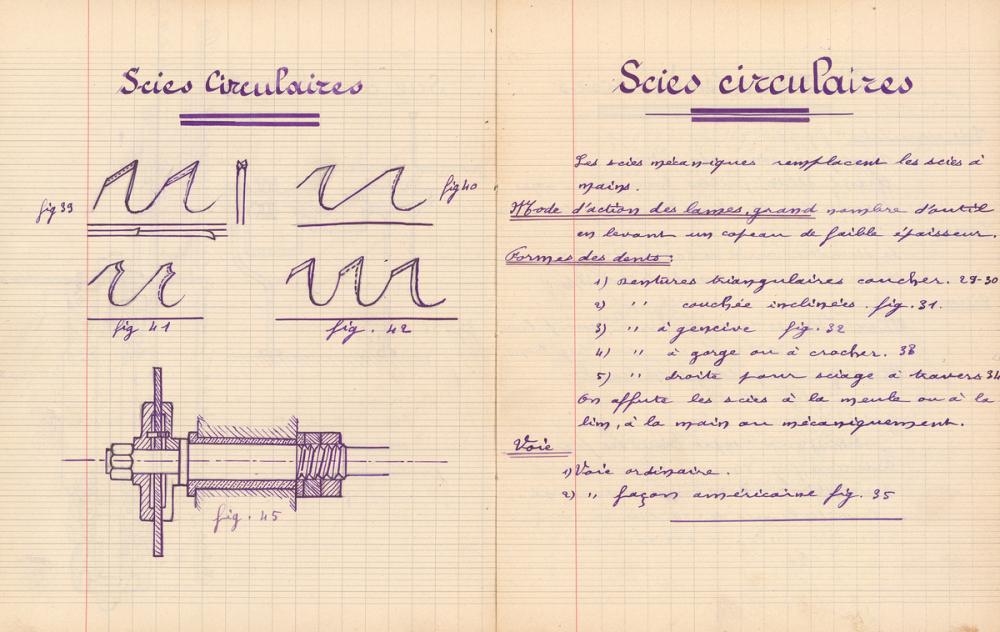 Scies Circulaires
fig 39
fig 40
fig 41
fig. 42
fig. 45
Scies circulaires
Les scies mécaniques remplacent les scies à
mains.
Mode d'action des lames, grand nombre d'outil
en levant un copeau de faible épaisseur.
Formes des dents :
1) dentures triangulaires coucher. 29-30
2) " couchée inclinées. fig. 31.
3) " à gencive fig. 32
4) " à gorge ou à crochet. 33
5) " droite pour sciage à travers 34
On affute les scies à la meule ou à la
lim, à la main ou mécaniquement.
Voie
1) Voie ordinaire.
2) " façon américaine fig. 35